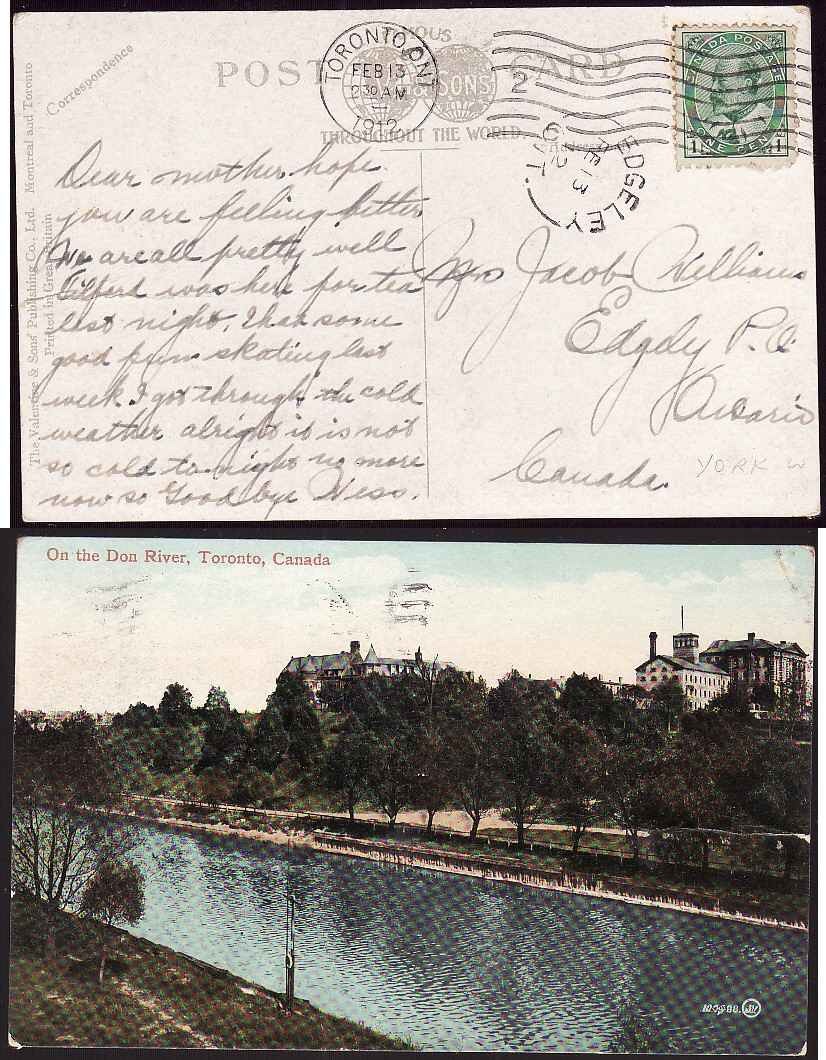 Correspondence
The Valentine & Sons' Publishing Co., Ltd. Montreal and Toronto
Printed in Great Britain
FAMOUS
POST CARD
& SONS
THROUGHOUT THE WORLD.
TORONTO, ONT.
FEB 13
230 AM
1912
2
EDGELEY
FE 13
12
ONT.
CANADA POSTAGE
ONE CENT
1 1
Dear mother hope
you are feeling better
We are all pretty well
Wilferd was here for tea
last night. I had some
good fun skating last
week I got through the cold
weather alright it is not
so cold to night no more
now so Goodbye Wess.
Mrs Jacob Williams
Edgely P.O.
Ontario
Canada.
YORK W
On the Don River, Toronto, Canada
JV